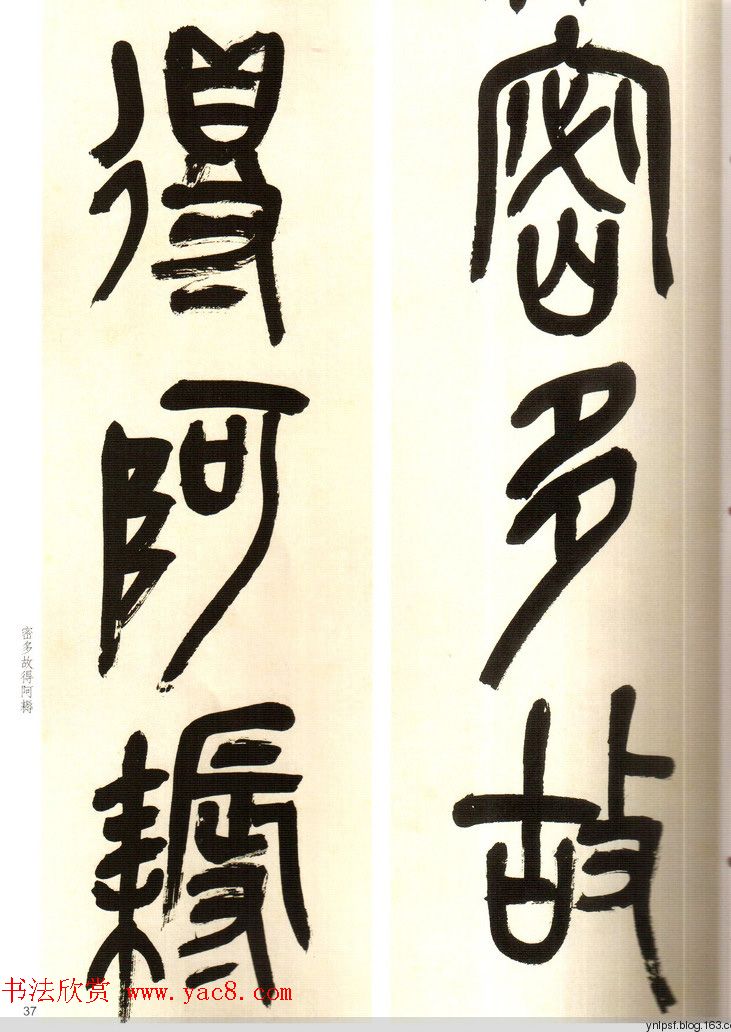 密多故
得阿耨
密多故得阿耨
书法欣赏 www.yac8.com
37
ynlpsf.blog.163.c